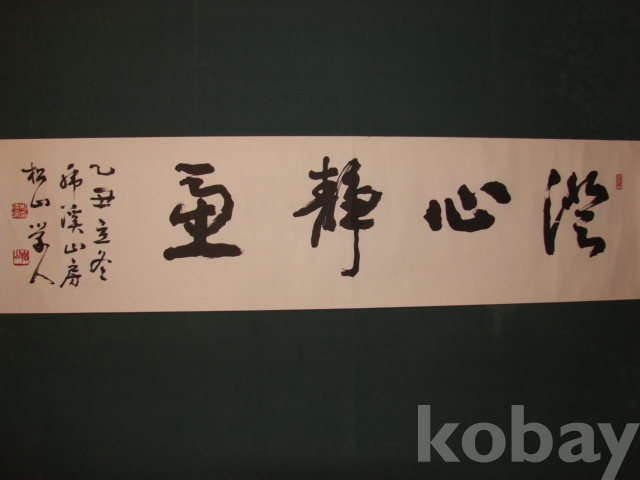 澄心靜慮
乙丑立冬
溪山房
松山學人
kobay